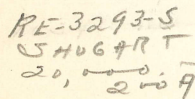 RE-3293-S
SHUGART
20,000.
200 A